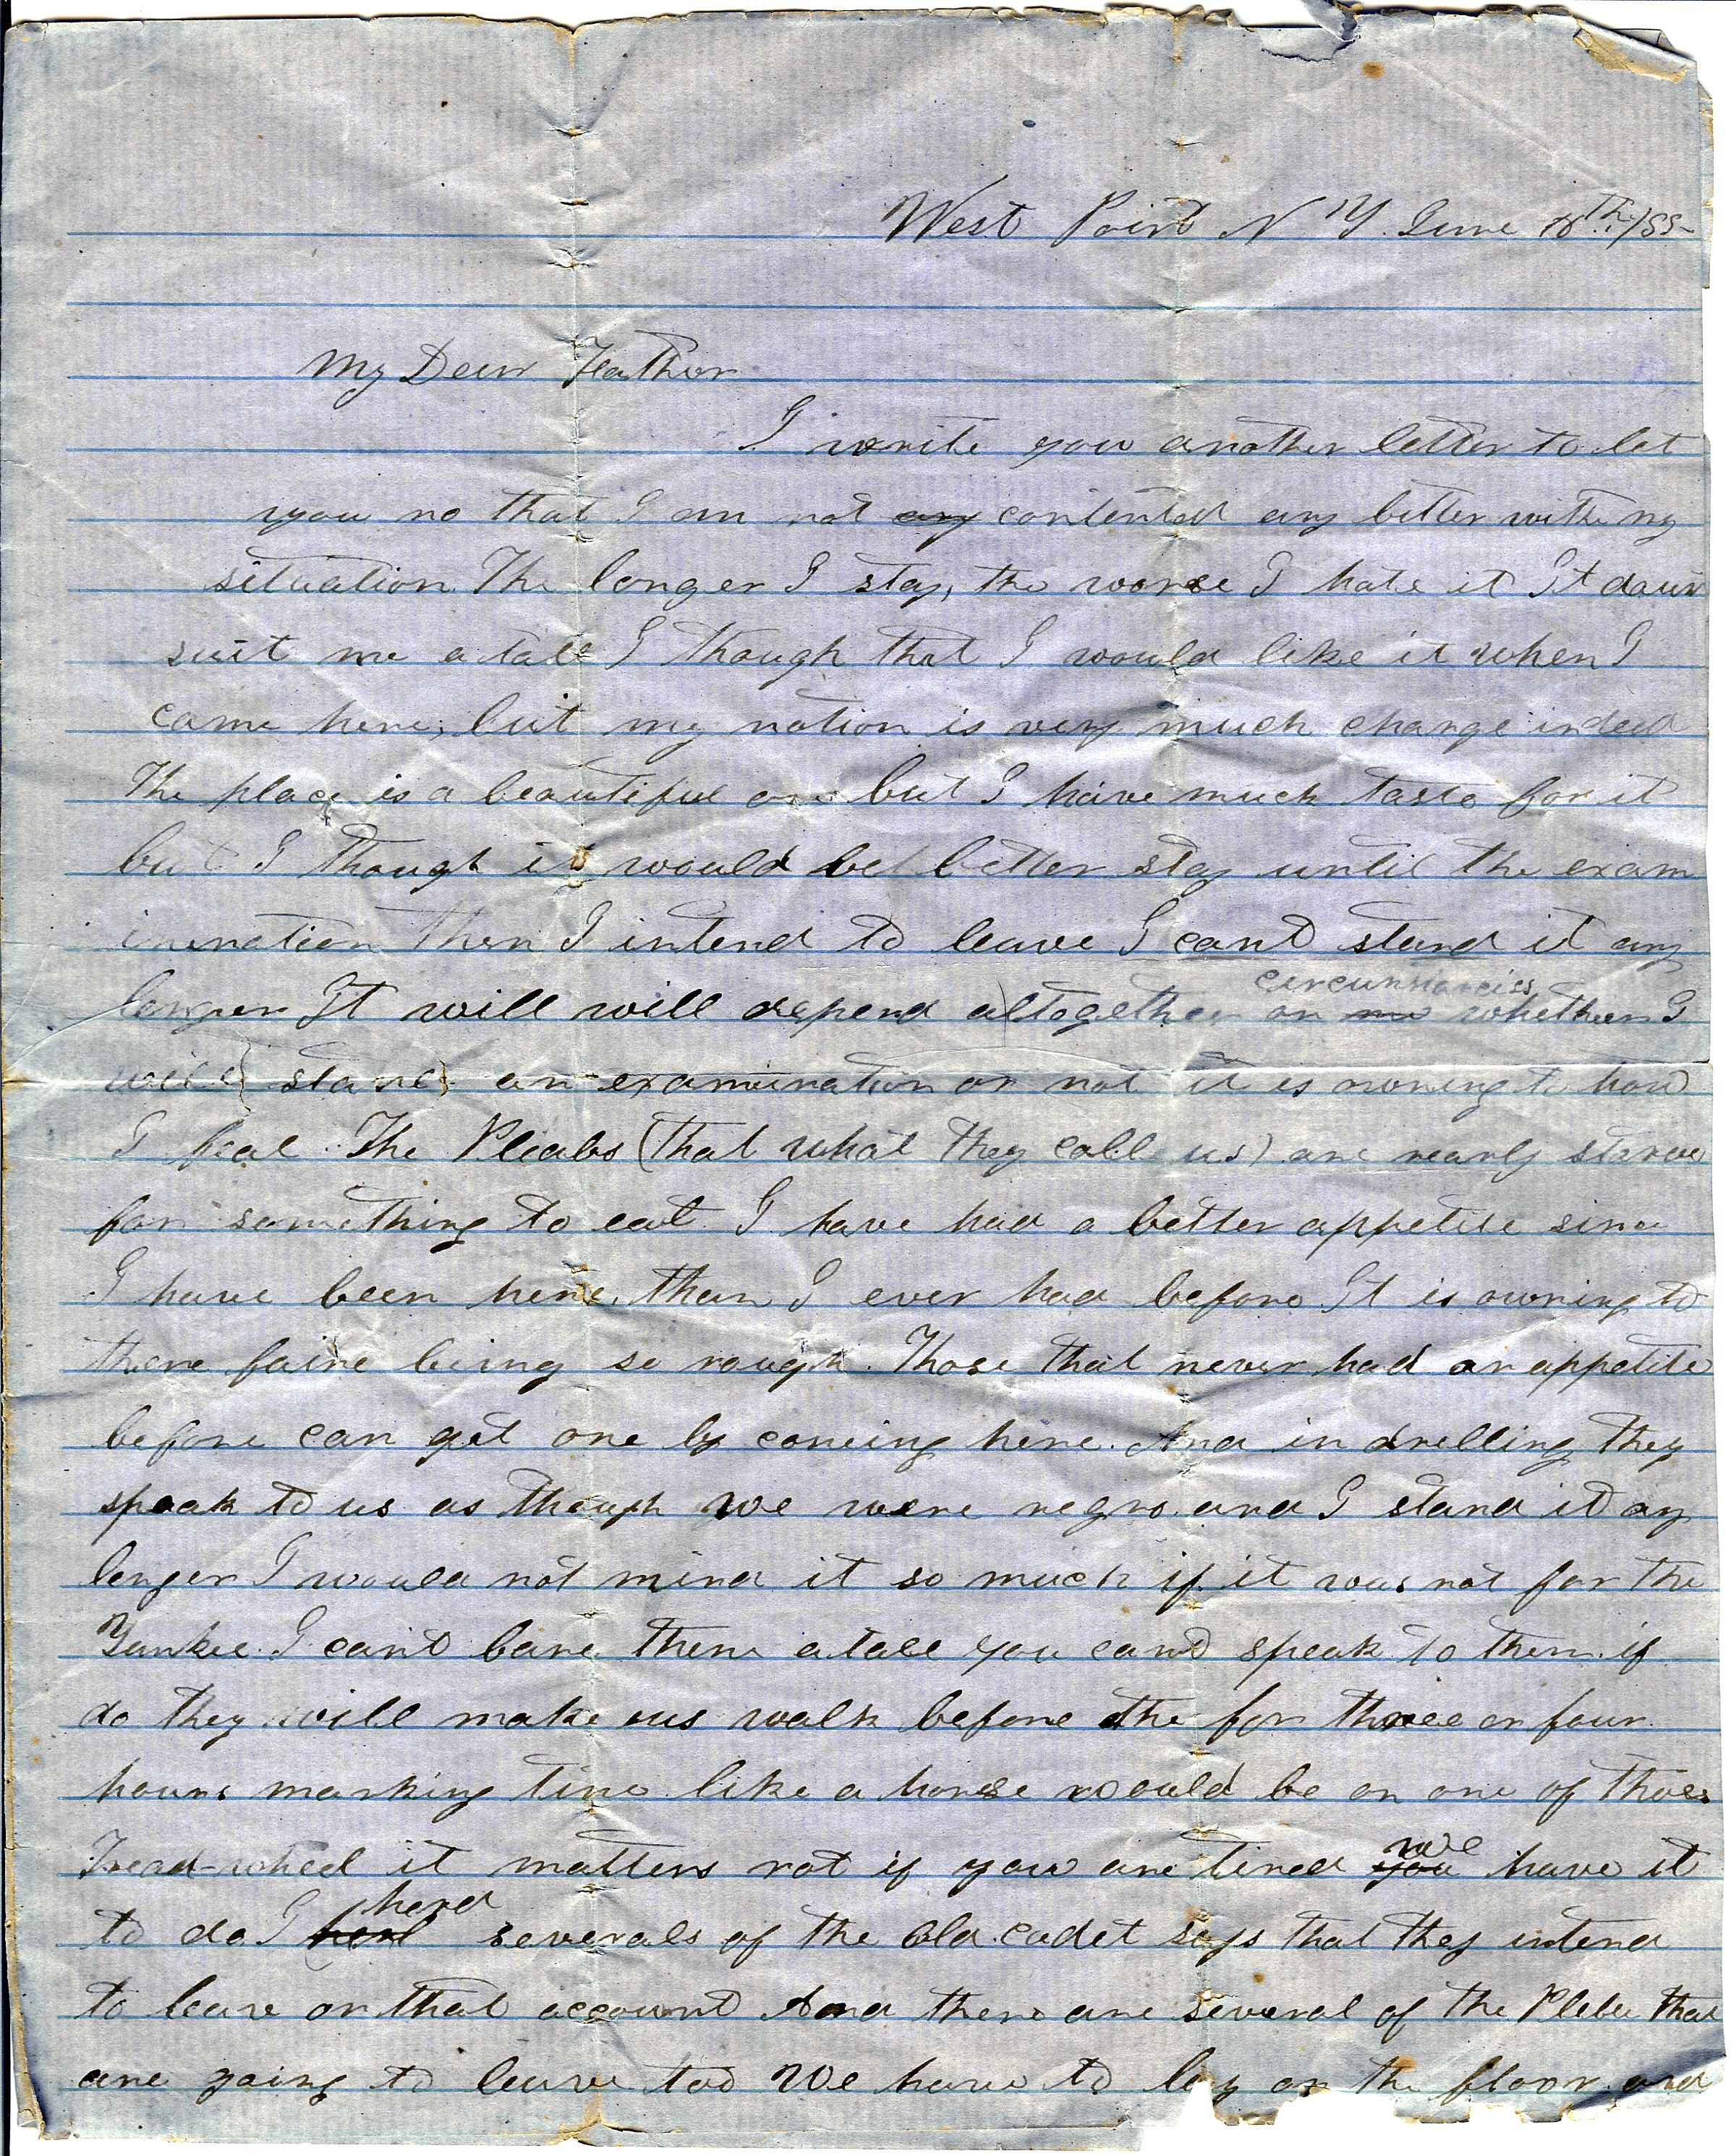 West Point N Y. June 18th /55
My Dear Father
I write you another letter to let
you no that I am not any contented any better with my
situation The longer I stay, the worse I hate it It
suit me atall I though that I would like it when I
came here, but my notion is very much change indeed
The place is a beautiful one but I have much taste for it
but I though it would be better stay until the exam
ination then I intend to leave I cant stand it any
circumstancies
longer It will will depend altogether on whether I
will stand an examination or not it is owning to how
I feal The Pleabs (that what they call us) are nearly starve
for something to eat I have had a better appetite since
I have been here, than I ever had before It is owning to
there faire being so rough. Those that never had an appetite
before can get one by comeing here. And in drelling they
speak to us as though we were negro and I stand it any
longer I would not mind it so much if it was not for the
Yankee I cant bare them atall you cant speak to them if
do they will make us walk before the for three or four
hours marking time like a horse would be on one of those
we
Tread-wheel it matters not if you are tired you have it
herd
to do I severals of the old cadet says that they intend
to leave on that account And there are several of the Plebe that
are going to leave too We have to lay on the floor and